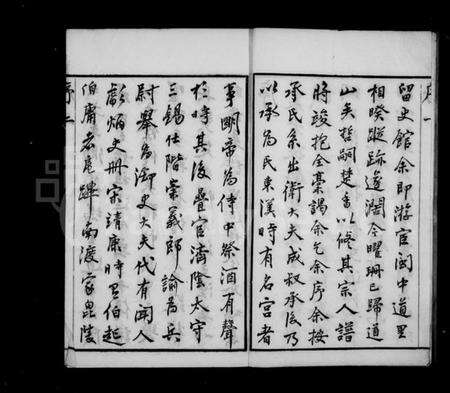 序一
留史館余即游宦閩中道里
相暌蹤跡遼濶今曜珊已歸道
山矣哲嗣楚香以修其宗人譜
將竣抱全稾謁余乞余序余按
承氏系出衛大夫成叔承後乃
以承為氏東漢時有名宮者
事明帝為侍中祭酒有聲
於時其後疊官濟陰太守
三錫仕階崇義郎諭為兵
尉舉為御史大夫代有聞人
彪炳史冊宋靖康時里伯起
伯膺者扈蹕南渡家毘陵
序二